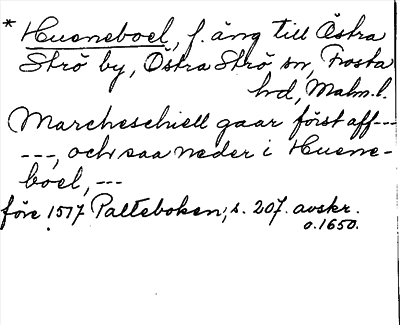 * Hueneboel, f. äng till Östra
Strö by, Östra Strö sn, Frosta
hd, Malm. l.
Marcheschiell gaar först aff---
---, och saa neder i Huene-
boel, ---
före 1517 Palteboken, s. 207. avskr.
o. 1650.